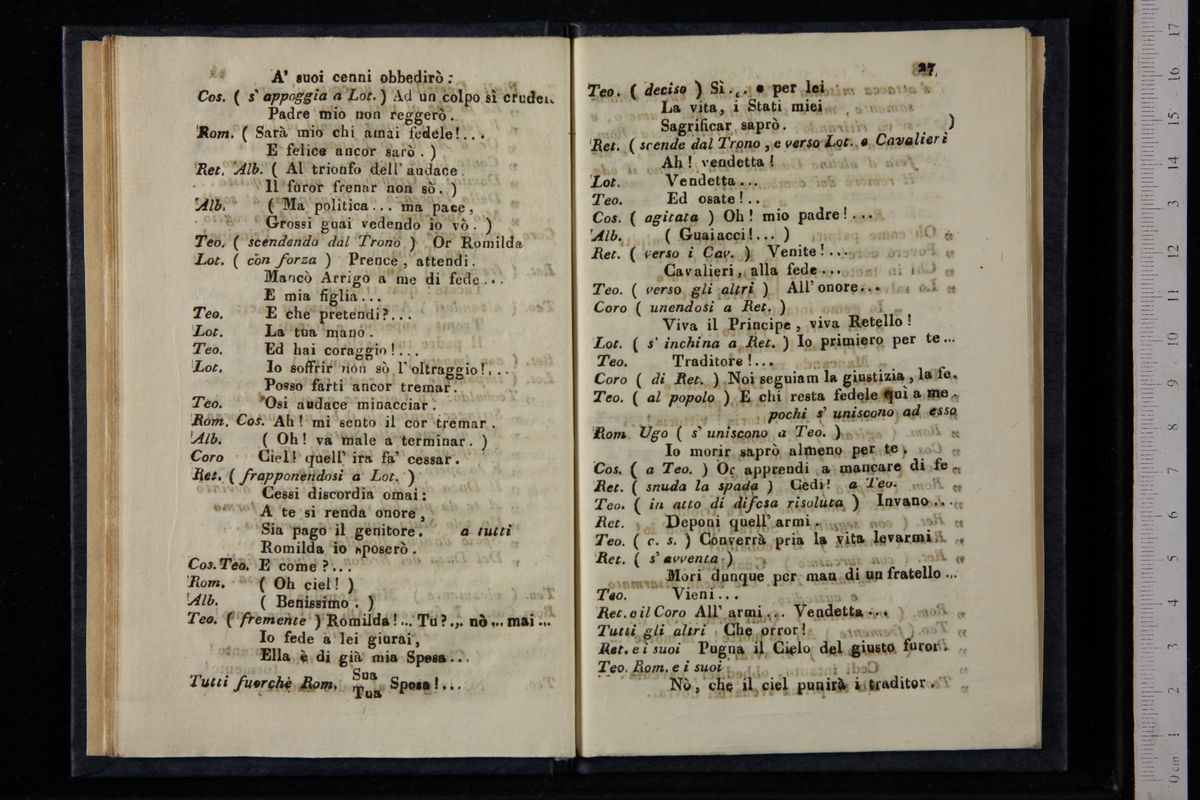 A' suoi cenni obbedirò:
Cos. ( s' appoggia a Lot. ) Ad un colpo sì crudel
Padre mio non reggerò.
Rom. ( Sarà mio chi amai fedele!...
E felice ancor sarò. )
Ret. Alb. ( Al trionfo dell' audace
Il furor frenar non sò. )
Alb. ( Ma politica... ma pace,
Grossi guai vedendo io vò. )
Teo. ( scendendo dal Trono ) Or Romilda
Lot. ( con forza ) Prence, attendi.
Mancò Arrigo a me di fede...
E mia figlia...
Teo. E che pretendi?...
Lot. La tua mano.
Teo. Ed hai coraggio!...
Lot. Io soffrir non sò l'oltraggio!...
Posso farti ancor tremar.
Teo. Osi audace minacciar.
Rom. Cos. Ah! mi sento il cor tremar.
Alb. ( Oh! va male a terminar. )
Coro Ciel! quell' ira fa' cessar.
Ret. ( frapponendosi a Lot. )
Cessi discordia omai:
A te si renda onore,
Sia pago il genitore. a tutti
Romilda io sposerò.
Cos. Teo. E come?...
Rom. ( Oh ciel! )
Alb. ( Benissimo. )
Teo. ( fremente ) Romilda!... Tu?... nò... mai...
Io fede a lei giurai,
Ella è di già mia Sposa...
Tutti fuorchè Rom. Sua
Tua Sposa!...
27
Teo. ( deciso ) Sì... e per lei
La vita, i Stati miei
Sagrificar saprò. )
Ret. ( scende dal Trono, e verso Lot. e Cavalieri
Ah! vendetta!
Lot. Vendetta...
Teo. Ed osate!..
Cos. ( agitata ) Oh! mio padre!...
Alb. ( Guaiacci!... )
Ret. ( verso i Cav. ) Venite!...
Cavalieri, alla fede...
Teo. ( verso gli altri ) All' onore...
Coro ( unendosi a Ret. )
Viva il Principe, viva Retello!
Lot. ( s' inchina a Ret. ) Io primiero per te...
Teo. Traditore!...
Coro ( di Ret. ) Noi seguiam la giustizia, la fe.
Teo. ( al popolo ) E chi resta fedele quì a me.
pochi s' uniscono ad esso
Rom. Ugo ( s' uniscono a Teo. )
Io morir saprò almeno per te.
Cos. ( a Teo. ) Or apprendi a mancare di fe
Ret. ( snuda la spada ) Cedi! a Teo.
Teo. ( in atto di difesa risoluta ) Invano...
Ret. Deponi quell' armi.
Teo. ( c. s. ) Converrà pria la vita levarmi
Ret. ( s' avventa )
Mori dunque per man di un fratello...
Teo. Vieni...
Ret. e il Coro All' armi... Vendetta...
Tutti gli altri Che orror!
Ret. e i suoi Pugna il Cielo del giusto furor.
Teo. Rom. e i suoi
Nò, che il ciel punirà i traditor.
0 cm 1 2 3 4 5 6 7 8 9 10 11 12 13 14 15 16 17